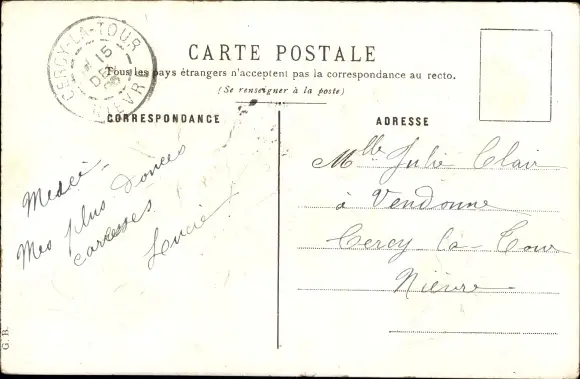 CERCY-LA-TOUR
15
DEC
NIÈVRE
CARTE POSTALE
Tous les pays étrangers n'acceptent pas la correspondance au recto.
(Se renseigner à la poste)
CORRESPONDANCE
Mes plus douces
caresses
Lucie
ADRESSE
Mlle Julie Clair
à Vendonne
Cercy-la-Tour
Nièvre
G. R.